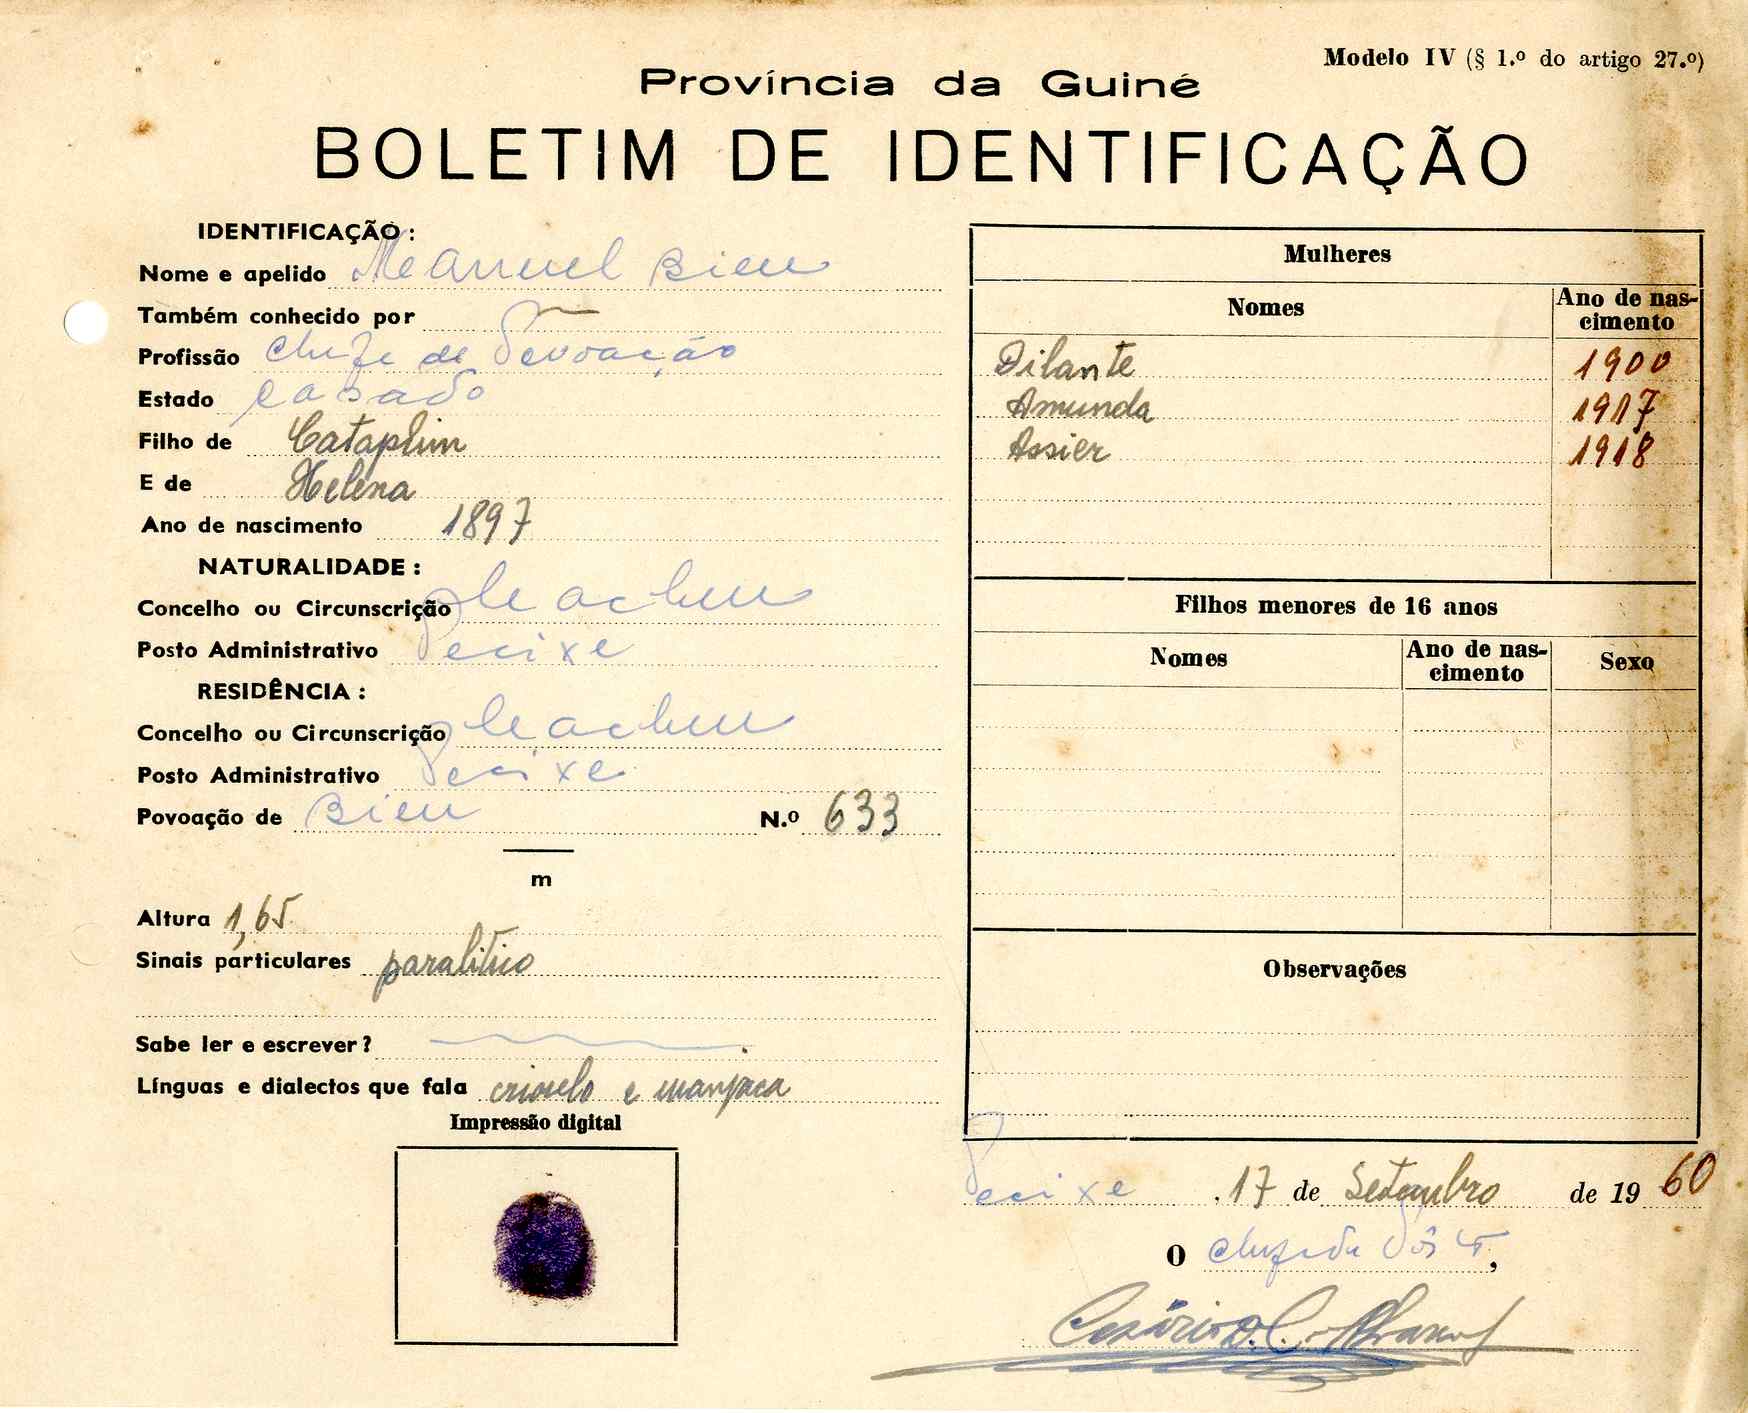 Modelo IV (§ 1.º do artigo 27.º)
Província da Guiné
BOLETIM DE IDENTIFICAÇÃO
IDENTIFICAÇÃO:
Nome e apelido Manuel Bieu
Também conhecido por
Profissão Chefe de Povoação
Estado Casado
Filho de Cataplim
E de Helena
Ano de nascimento 1897
NATURALIDADE:
Concelho ou Circunscrição
Posto Administrativo Pecixe
RESIDÊNCIA:
Concelho ou Circunscrição
Posto Administrativo Pecixe
Povoação de Bieu N.º 633
m
Altura 1,65
Sinais particulares paralitico
Sabe ler e escrever?
Línguas e dialectos que fala crioulo e manjaca
Impressão digital
Mulheres
Nomes Ano de nas-
cimento
Dilante 1900
Amunda 1917
Assier 1918
Filhos menores de 16 anos
Nomes Ano de nas-
cimento Sexo
Observações
Pecixe, 17 de Setembro de 1960
O Chefe do Pôsto,